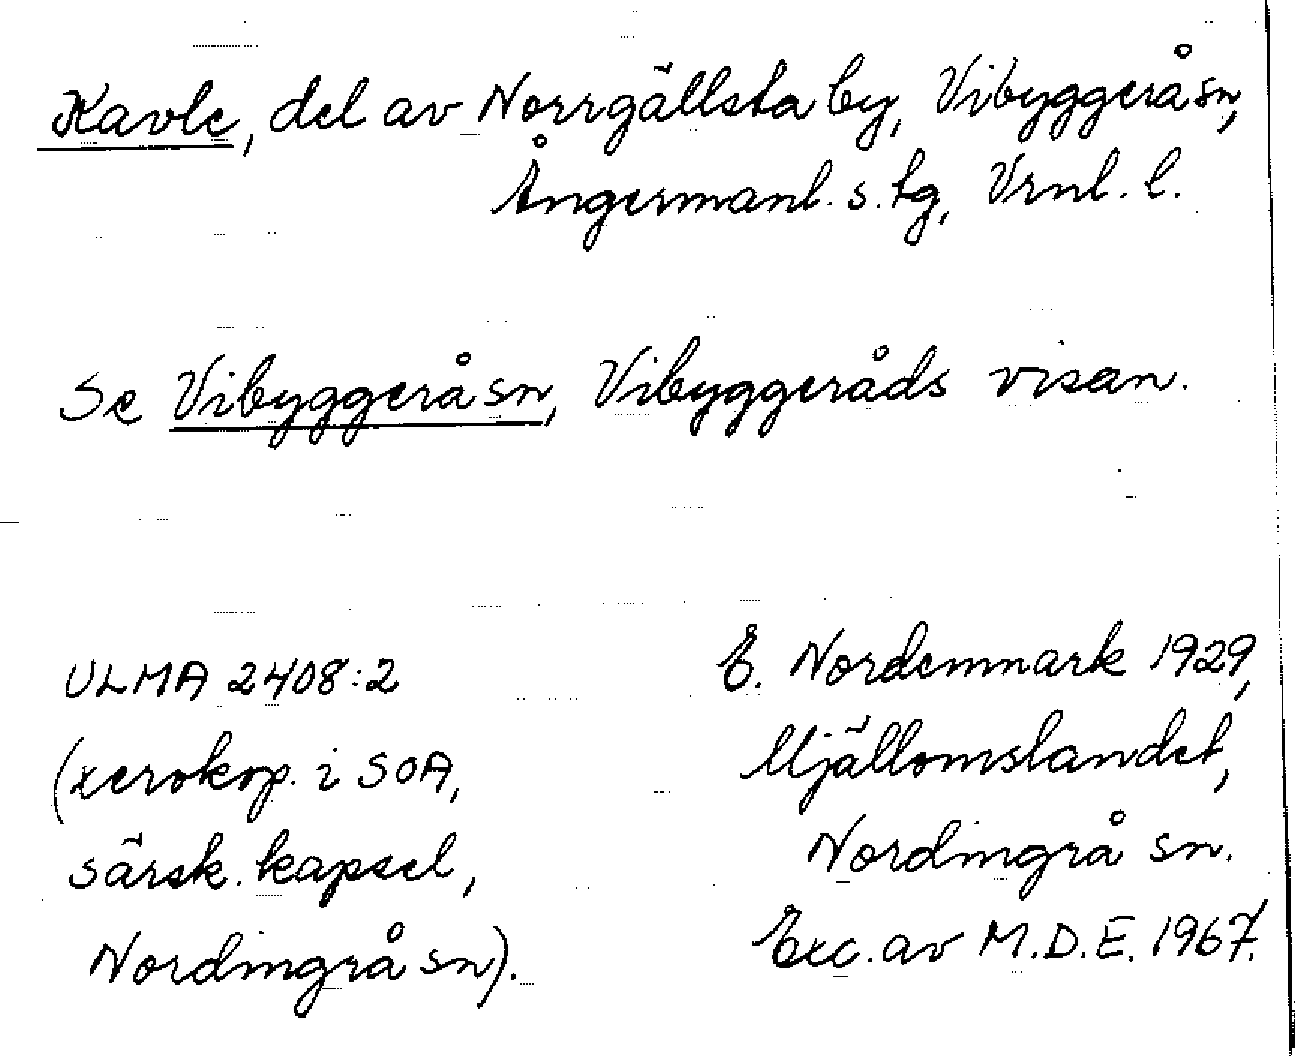 Kavle, del av Norrgällsta by, Vibyggerå sn,
Ångermanl. s. tg, Vrnl. l.
Se Vibyggerå sn, Vibyggeråds visan.
ULMA 2408:2
(xerokop. i SOA,
särsk. kapsel,
Nordingrå sn).
E. Nordenmark 1929,
Mjällomslandet,
Nordingrå sn.
Exc. av M.D.E. 1967.